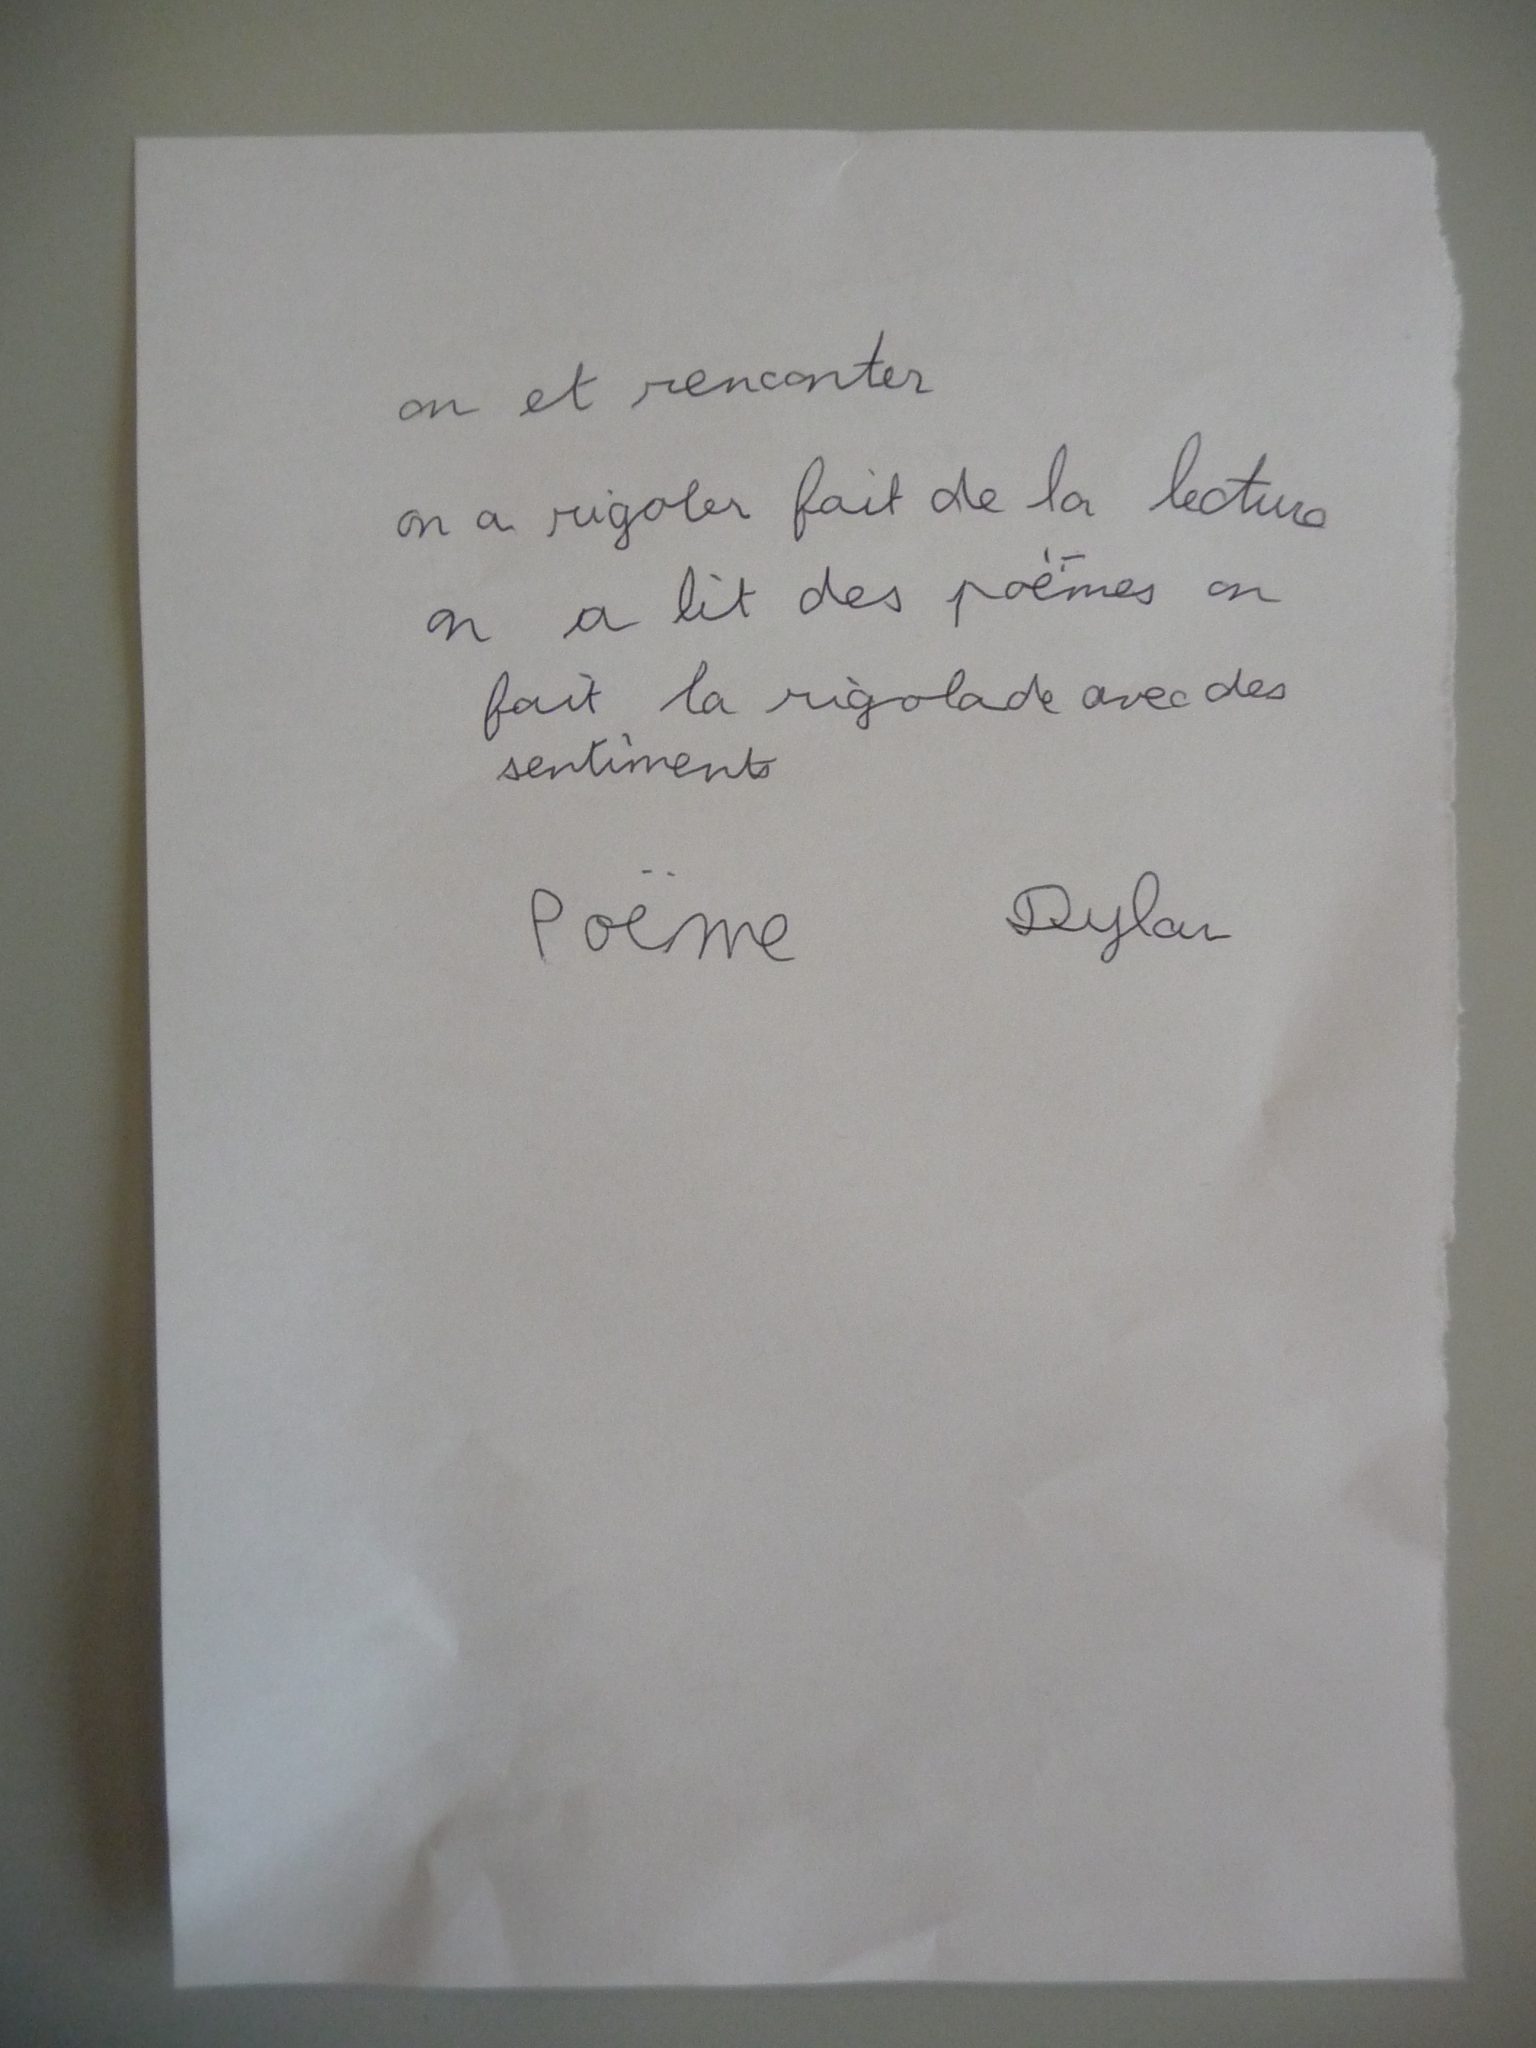 on et renconter
on a rigoler fait de la lecture
on a lit des poëmes on
fait la rigolade avec des
sentiments
Poëme Dylan